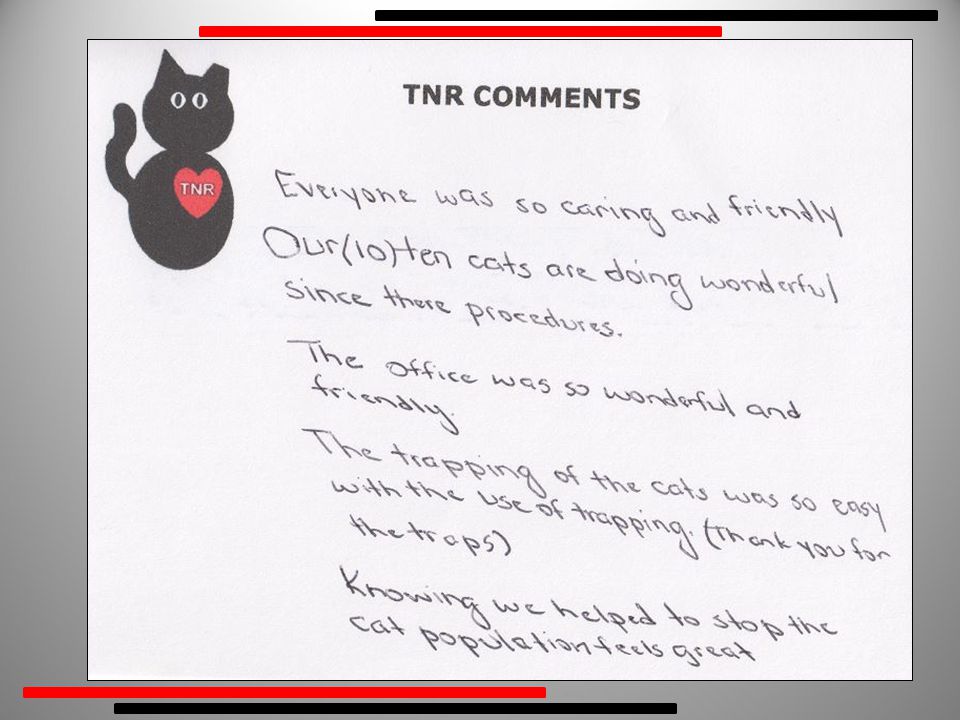 TNR COMMENTS
TNR
Everyone was so caring and friendly
Our (10) ten cats are doing wonderful
since there procedures.
The office was so wonderful and
friendly.
The trapping of the cats was so easy
with the use of trapping. (Thank you for
the traps)
Knowing we helped to stop the
cat population feels great